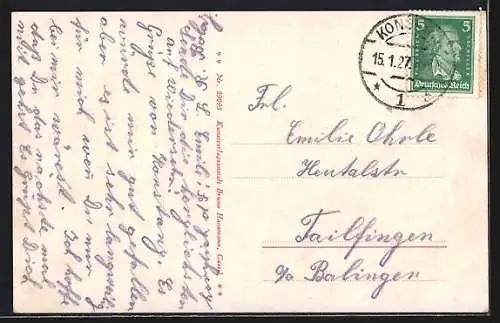 Lb. Emil!
Sende Dir die herzlichsten
Grüsse von Konstanz. Es
würde mir gut gefallen
aber es ist sehr langweilig
nur wen Du nur
bei mir wärest. Ich hoffe
daß Du das nächste mal
mit gehst. Es grüßt Dich
auf Wiedersehn
** Nr. 19055 Kunstverlagsanstalt Bruno Hansmann, Cassel **
KONS
15.1.27.
* 1
5
5
Deutsches Reich
Frl.
Emilie Ohrle
Heutalstr
Tailfingen
c/o Balingen